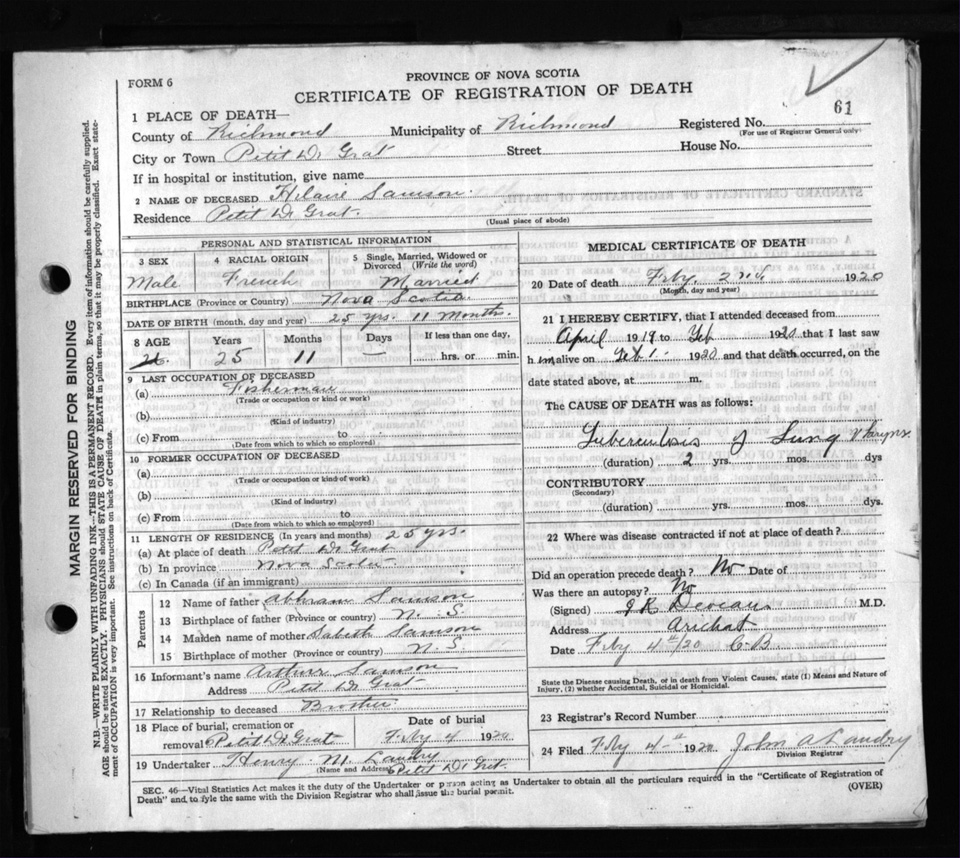 FORM 6
PROVINCE OF NOVA SCOTIA
CERTIFICATE OF REGISTRATION OF DEATH
61
1 PLACE OF DEATH—
County of Richmond Municipality of Richmond Registered No.
(For use of Registrar General only)
City or Town Petit De Grat Street House No.
If in hospital or institution, give name
2 NAME OF DECEASED Hilaire Samson
Residence Petit De Grat
(Usual place of abode)
PERSONAL AND STATISTICAL INFORMATION
3 SEX 4 RACIAL ORIGIN 5 Single, Married, Widowed or Divorced (Write the word)
Male French Married
BIRTHPLACE (Province or Country) Nova Scotia
DATE OF BIRTH (month, day and year) 25 yrs. 11 Months.
8 AGE Years Months Days If less than one day,
25 11 hrs. or min.
9 LAST OCCUPATION OF DECEASED
(a) Fisherman
(Trade or occupation or kind or work)
(b)
(Kind of industry)
(c) From to
(Date from to which so employed)
10 FORMER OCCUPATION OF DECEASED
(a)
(Trade or occupation or kind of work)
(b)
(Kind of industry)
(c) From to
(Date from to which so employed)
11 LENGTH OF RESIDENCE (In years and months) 25 yrs.
(a) At place of death Petit De Grat
(b) In province Nova Scotia
(c) In Canada (if an immigrant)
Parents
12 Name of father Abham Samson
13 Birthplace of father (Province or country) N. S.
14 Maiden name of mother Sabeth Samson
15 Birthplace of mother (Province or country) N. S.
16 Informant's name Arthur Samson
Address Petit De Grat
17 Relationship to deceased Brother
18 Place of burial, cremation or removal Petit De Grat Date of burial Feby 4 1920
19 Undertaker Henry M. Landry
(Name and Address) Petit De Grat
MEDICAL CERTIFICATE OF DEATH
20 Date of death Feby, 2nd 1920
(Month, day and year)
21 I HEREBY CERTIFY, that I attended deceased from
April 1919 to Feb 1920 that I last saw
him alive on Feb 1 1920 and that death occurred, on the
date stated above, at m.
The CAUSE OF DEATH was as follows:
Tuberculosis of Lung
(duration) 2 yrs. mos. dys
CONTRIBUTORY
(Secondary)
(duration) yrs. mos. dys.
22 Where was disease contracted if not at place of death?
Did an operation precede death? No Date of
Was there an autopsy? No
(Signed) M.D.
Address Arichat
Date Feby 4th/20 C. B.
State the Disease causing Death, or in death from Violent Causes, state (1) Means and Nature of Injury, (2) whether Accidental, Suicidal or Homicidal.
23 Registrar's Record Number
24 Filed Feby 4th 1920 John A Landry
Division Registrar
SEC. 46—Vital Statistics Act makes it the duty of the Undertaker or person acting as Undertaker to obtain all the particulars required in the "Certificate of Registration of
Death" and to file the same with the Division Registrar who shall issue the burial permit.
(OVER)
MARGIN RESERVED FOR BINDING
N.B.—WRITE PLAINLY WITH UNFADING INK—THIS IS A PERMANENT RECORD. Every item of information should be carefully supplied.
AGE should be stated EXACTLY. PHYSICIANS should STATE CAUSE OF DEATH in plain terms, so that it may be properly classified. Exact statement of OCCUPATION is very important. See instructions on back of Certificate.